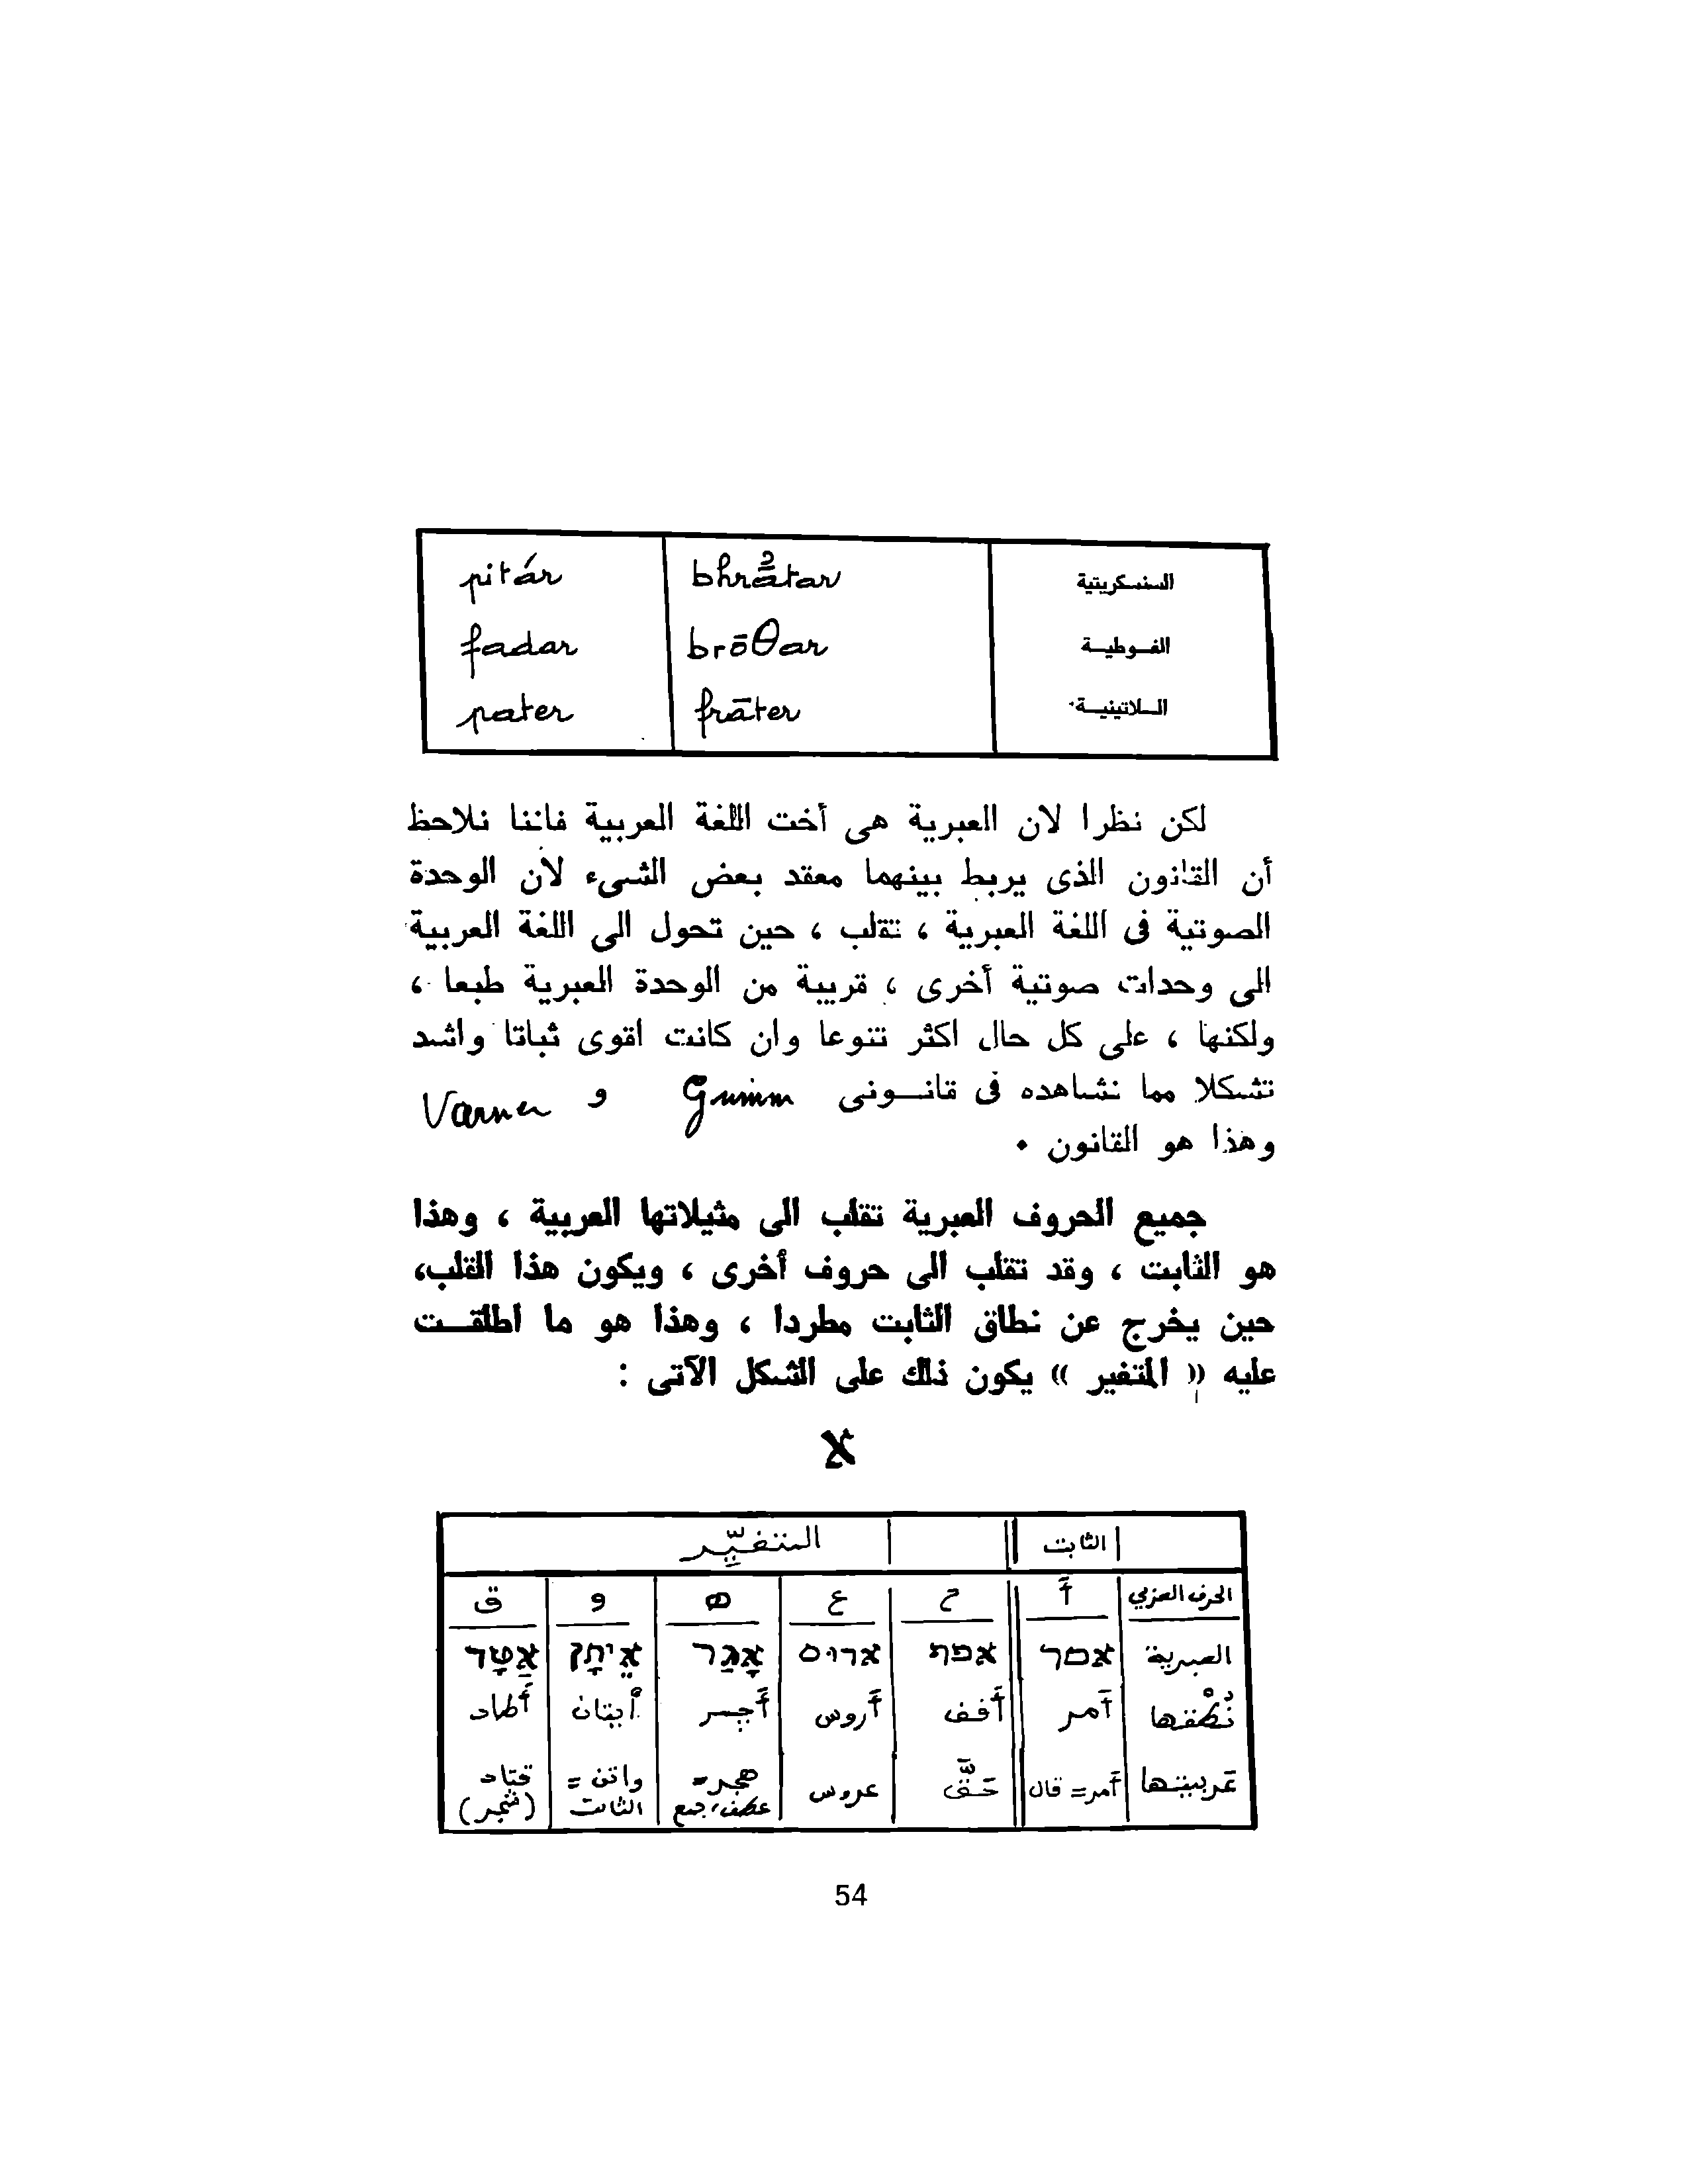 السنسكريتية bhrātar pitár
الغـوطيـة brōθar fadar
الـلاتينيـة frāter pater
لكن نظرا لان العبرية هى أخت اللغة العربية فاننا نلاحظ
أن القانون الذى يربط بينهما معقد بعض الشىء لأن الوحدة
الصوتية فى اللغة العبرية ، تقلب ، حين تحول الى اللغة العربية
الى وحدات صوتية أخرى ، قريبة من الوحدة العبرية طبعا ،
ولكنها ، على كل حال اكثر تنوعا وان كانت اقوى ثباتا واشد
تشكلا مما نشاهده فى قانـــونى Grimm و Varner
وهذا هو القانون .
جميع الحروف العبرية تقلب الى مثيلاتها العربية ، وهذا
هو الثابت ، وقد تقلب الى حروف أخرى ، ويكون هذا القلب،
حين يخرج عن نطاق الثابت مطردا ، وهذا هو ما اطلقـــت
عليه « المتغير » يكون ذلك على الشكل الآتى :
א
الثابت المتغيِّر
الحرف العربي أ ح ع ه و ق
العبرية אמר אפף ארוס אָגַר אֵיתָן אָטָד
نُطْقها أمر أفف أروس أجر أيتان أطاد
عربيتها أمر = قال حَفَّ عروس هجر = واتن = قتاد
عطف، جمع الثابت (شجر)
54